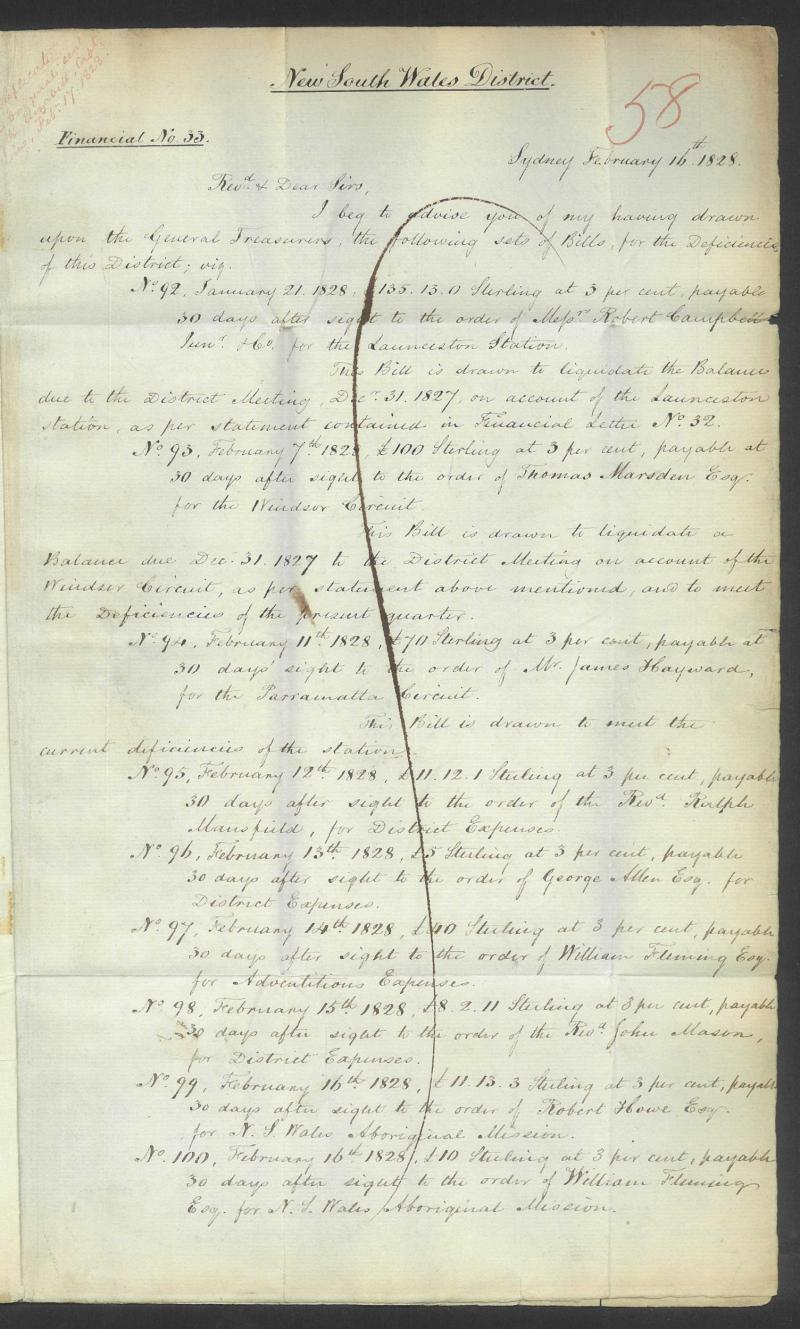 Duplicate
Original sent
Capt.
Feb. 17. 1828.
New South Wales District.
58
Financial No. 33.
Sydney February 16th 1828.
Revd & Dear Sirs,
I beg to advise you of my having drawn
upon the General Treasurers, the following sets of Bills, for the Deficiencies
of this District; viz.
No. 92, January 21. 1828, £135. 13. 0 Sterling at 3 per cent, payable
30 days after sight to the order of Messrs Robert Campbell
Junr. & Co. for the Launceston Station.
This Bill is drawn to liquidate the Balance
due to the District Meeting, Decr. 31. 1827, on account of the Launceston
station, as per statement contained in Financial Letter No. 32.
No. 93, February 7th 1828, £100 Sterling at 3 per cent, payable at
30 days after sight to the order of Thomas Marsden Esq.
for the Windsor Circuit.
This Bill is drawn to liquidate a
Balance due Dec. 31. 1827 to the District Meeting on account of the
Windsor Circuit, as per statement above mentioned, and to meet
the Deficiencies of the present quarter.
No. 94, February 11th 1828, £70 Sterling at 3 per cent, payable at
30 days' sight to the order of Mr. James Hayward,
for the Parramatta Circuit.
This Bill is drawn to meet the
current deficiencies of the station.
No. 95, February 12th 1828, £11. 12. 1 Sterling at 3 per cent, payable
30 days after sight to the order of the Revd. Ralph
Mansfield, for District Expenses.
No. 96, February 13th 1828, £5 Sterling at 3 per cent, payable
30 days after sight to the order of George Allen Esq. for
District Expenses.
No. 97, February 14th 1828, £40 Sterling at 3 per cent, payable
30 days after sight to the order of William Fleming Esq.
for Adventitious Expenses.
No. 98, February 15th 1828, £8. 2. 11 Sterling at 3 per cent, payable
30 days after sight to the order of the Revd John Mason,
for District Expenses.
No. 99, February 16th 1828, £11. 13. 3 Sterling at 3 per cent, payable
30 days after sight to the order of Robert Howe Esq.
for N. S. Wales Aboriginal Mission.
No. 100, February 16th 1828, £10 Sterling at 3 per cent, payable
30 days after sight to the order of William Fleming
Esq. for N. S. Wales Aboriginal Mission.